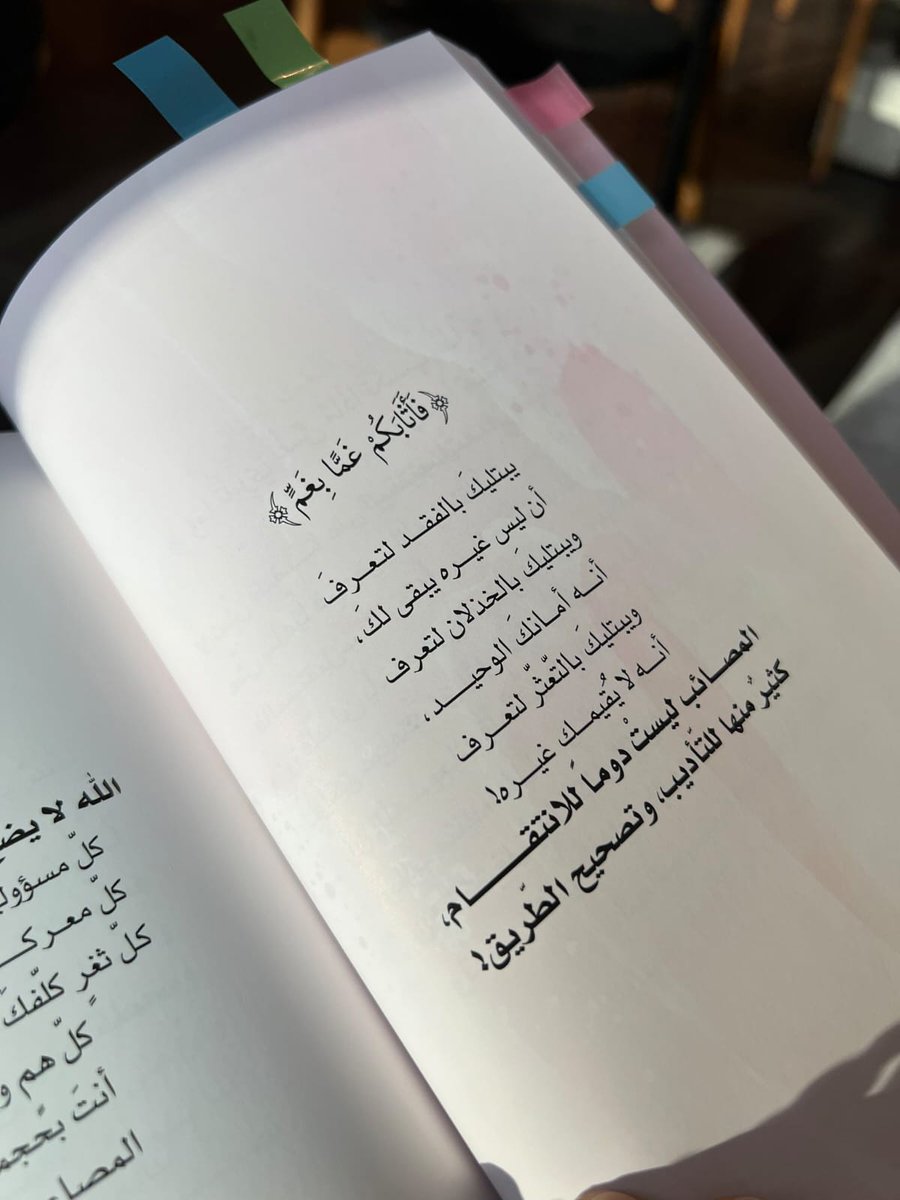 ﴿فَأَثَابَكُمْ غَمًّا بِغَمٍّ﴾
يبتليكَ بالفقـد لتعـرفَ
أن ليس غيـره يبقى لكَ،
ويبتليكَ بالخذلان لتعرف
أنـه أمـانكَ الوحيـد،
ويبتليكَ بالتّعثّر لتعـرف
أنـه لا يُقيمـك غيـره!
المصـائب ليستْ دومـاً للانتقـام،
كثيرٌ منها للتأديب، وتصحيح الطّريق!
الله لا
كلّ
كلّ
كلّ ثغرٍ كلّفكَ
كلّ هم
أنتَ